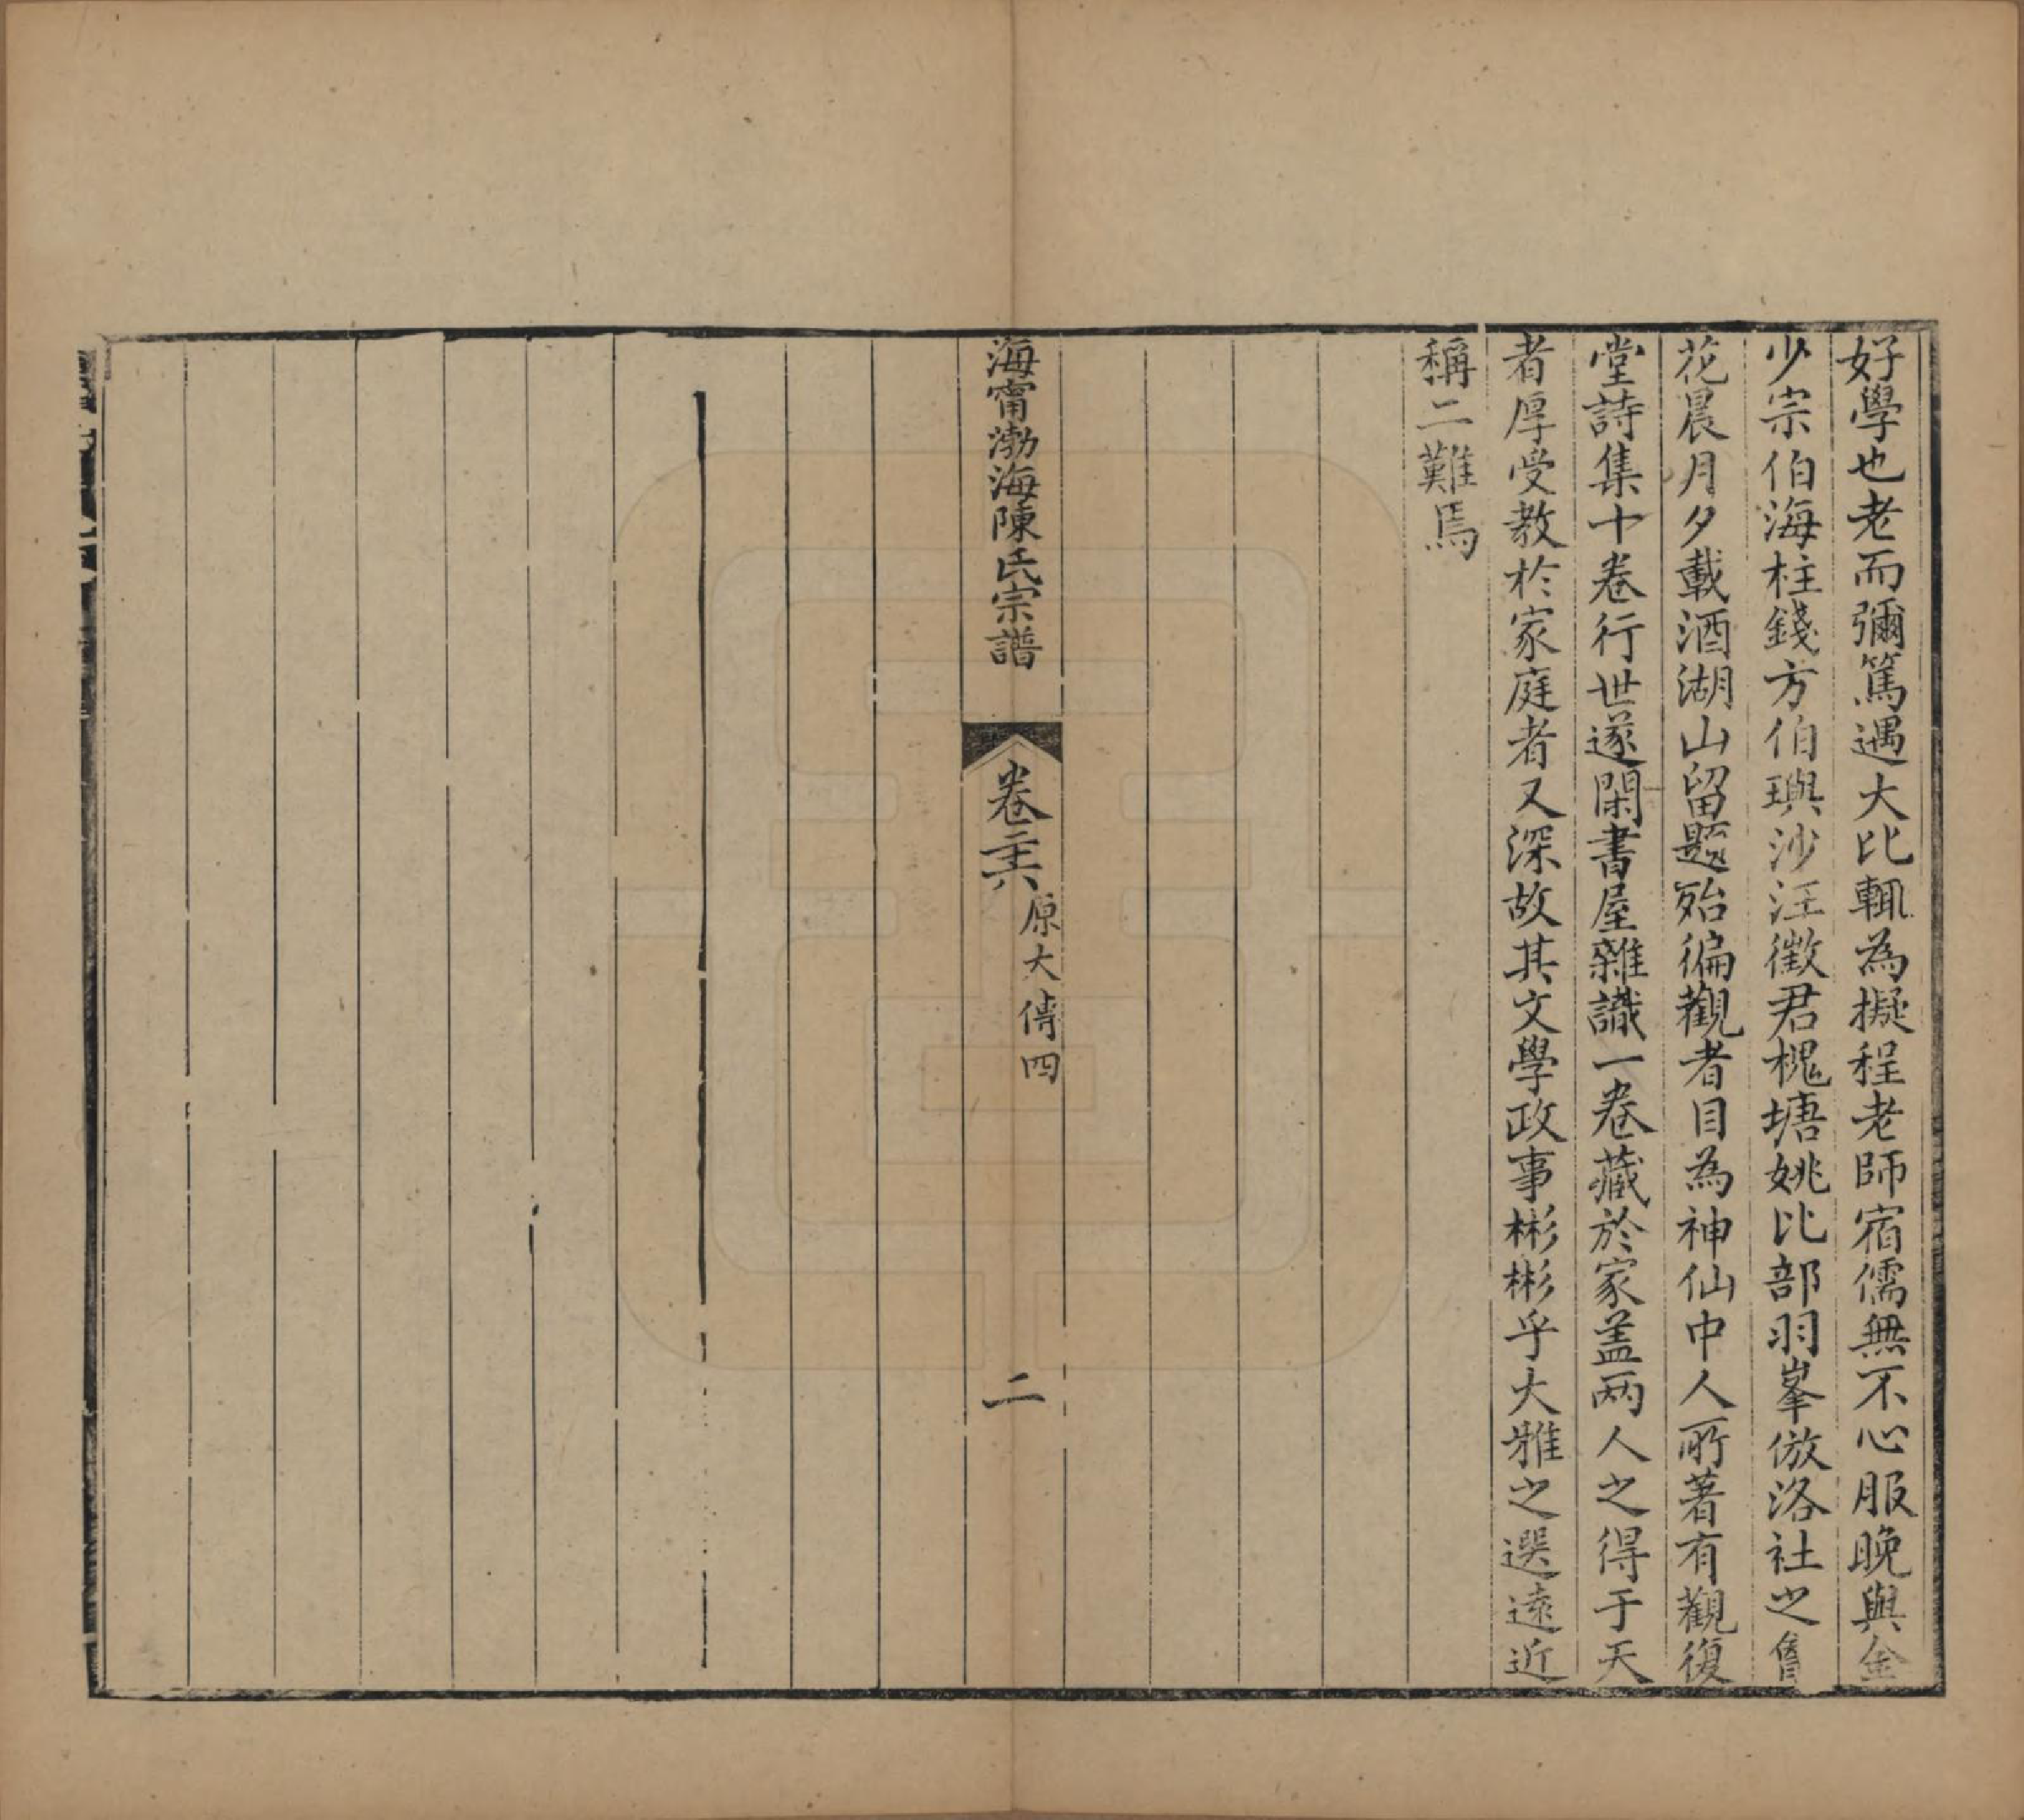 好學也老而彌篤遇大比輒為擬程老師宿儒無不心服晚與金
少宗伯海柱錢方伯璵沙汪徵君槐塘姚比部羽峯倣洛社之會
花晨月夕載酒湖山留題殆徧觀者目為神仙中人所著有觀復
堂詩集十卷行世遂閑書屋雜識一卷藏於家盖两人之得于天
者厚受教於家庭者又深故其文學政事彬彬乎大雅之選遠近
稱二難焉
海甯渤海陳氏宗譜
卷二十六
原大傳四
二